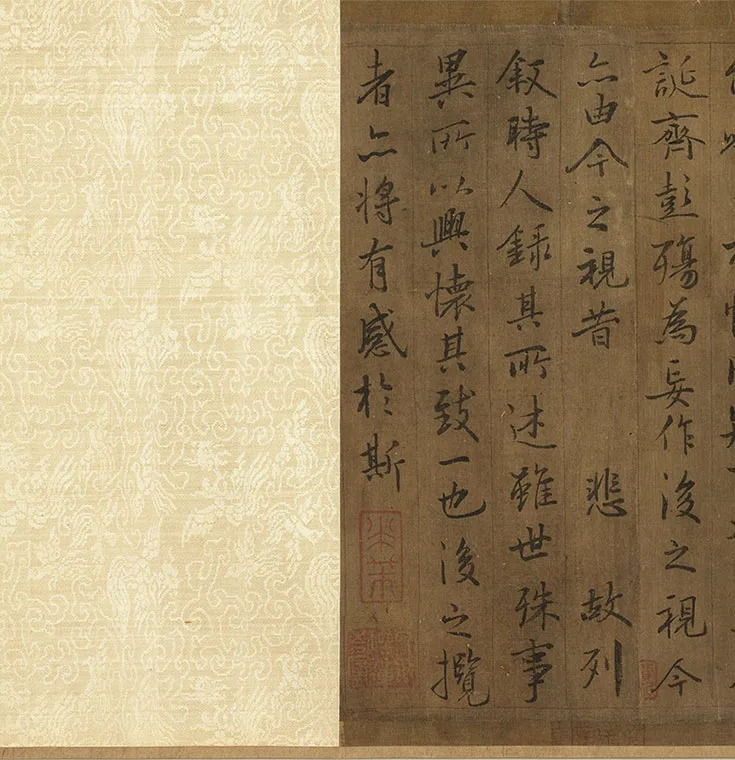 誕齊彭殤為妄作後之視今
亦由今之視昔 悲 故列
叙時人錄其所述雖世殊事
異所以興懷其致一也後之攬
者亦將有感於斯